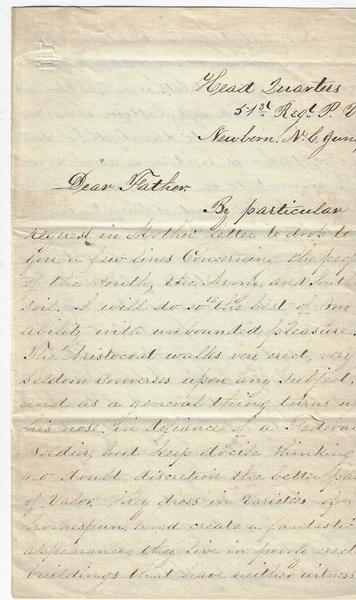 Head Quarters
51st Regt. P. V
Newbern. N. C. June
Dear Father.
By particular
request in Mother letter to drop to
you a few lines Concerning the peop
of the South, the Army, and
soil. I will do so to the best of my
ability with unbounded pleasure.
The Aristocrat walks very erect, very
seldom converses upon any subject,
and as a general thing turns u
his nose in defiance of a Federal
Soldier, but keep docile thinking
no doubt discretion the better par
of Valor. They dress in Varieties of
homespun, and create a fantastic
appearance, they live in poorly erect
buildings that have neither witness